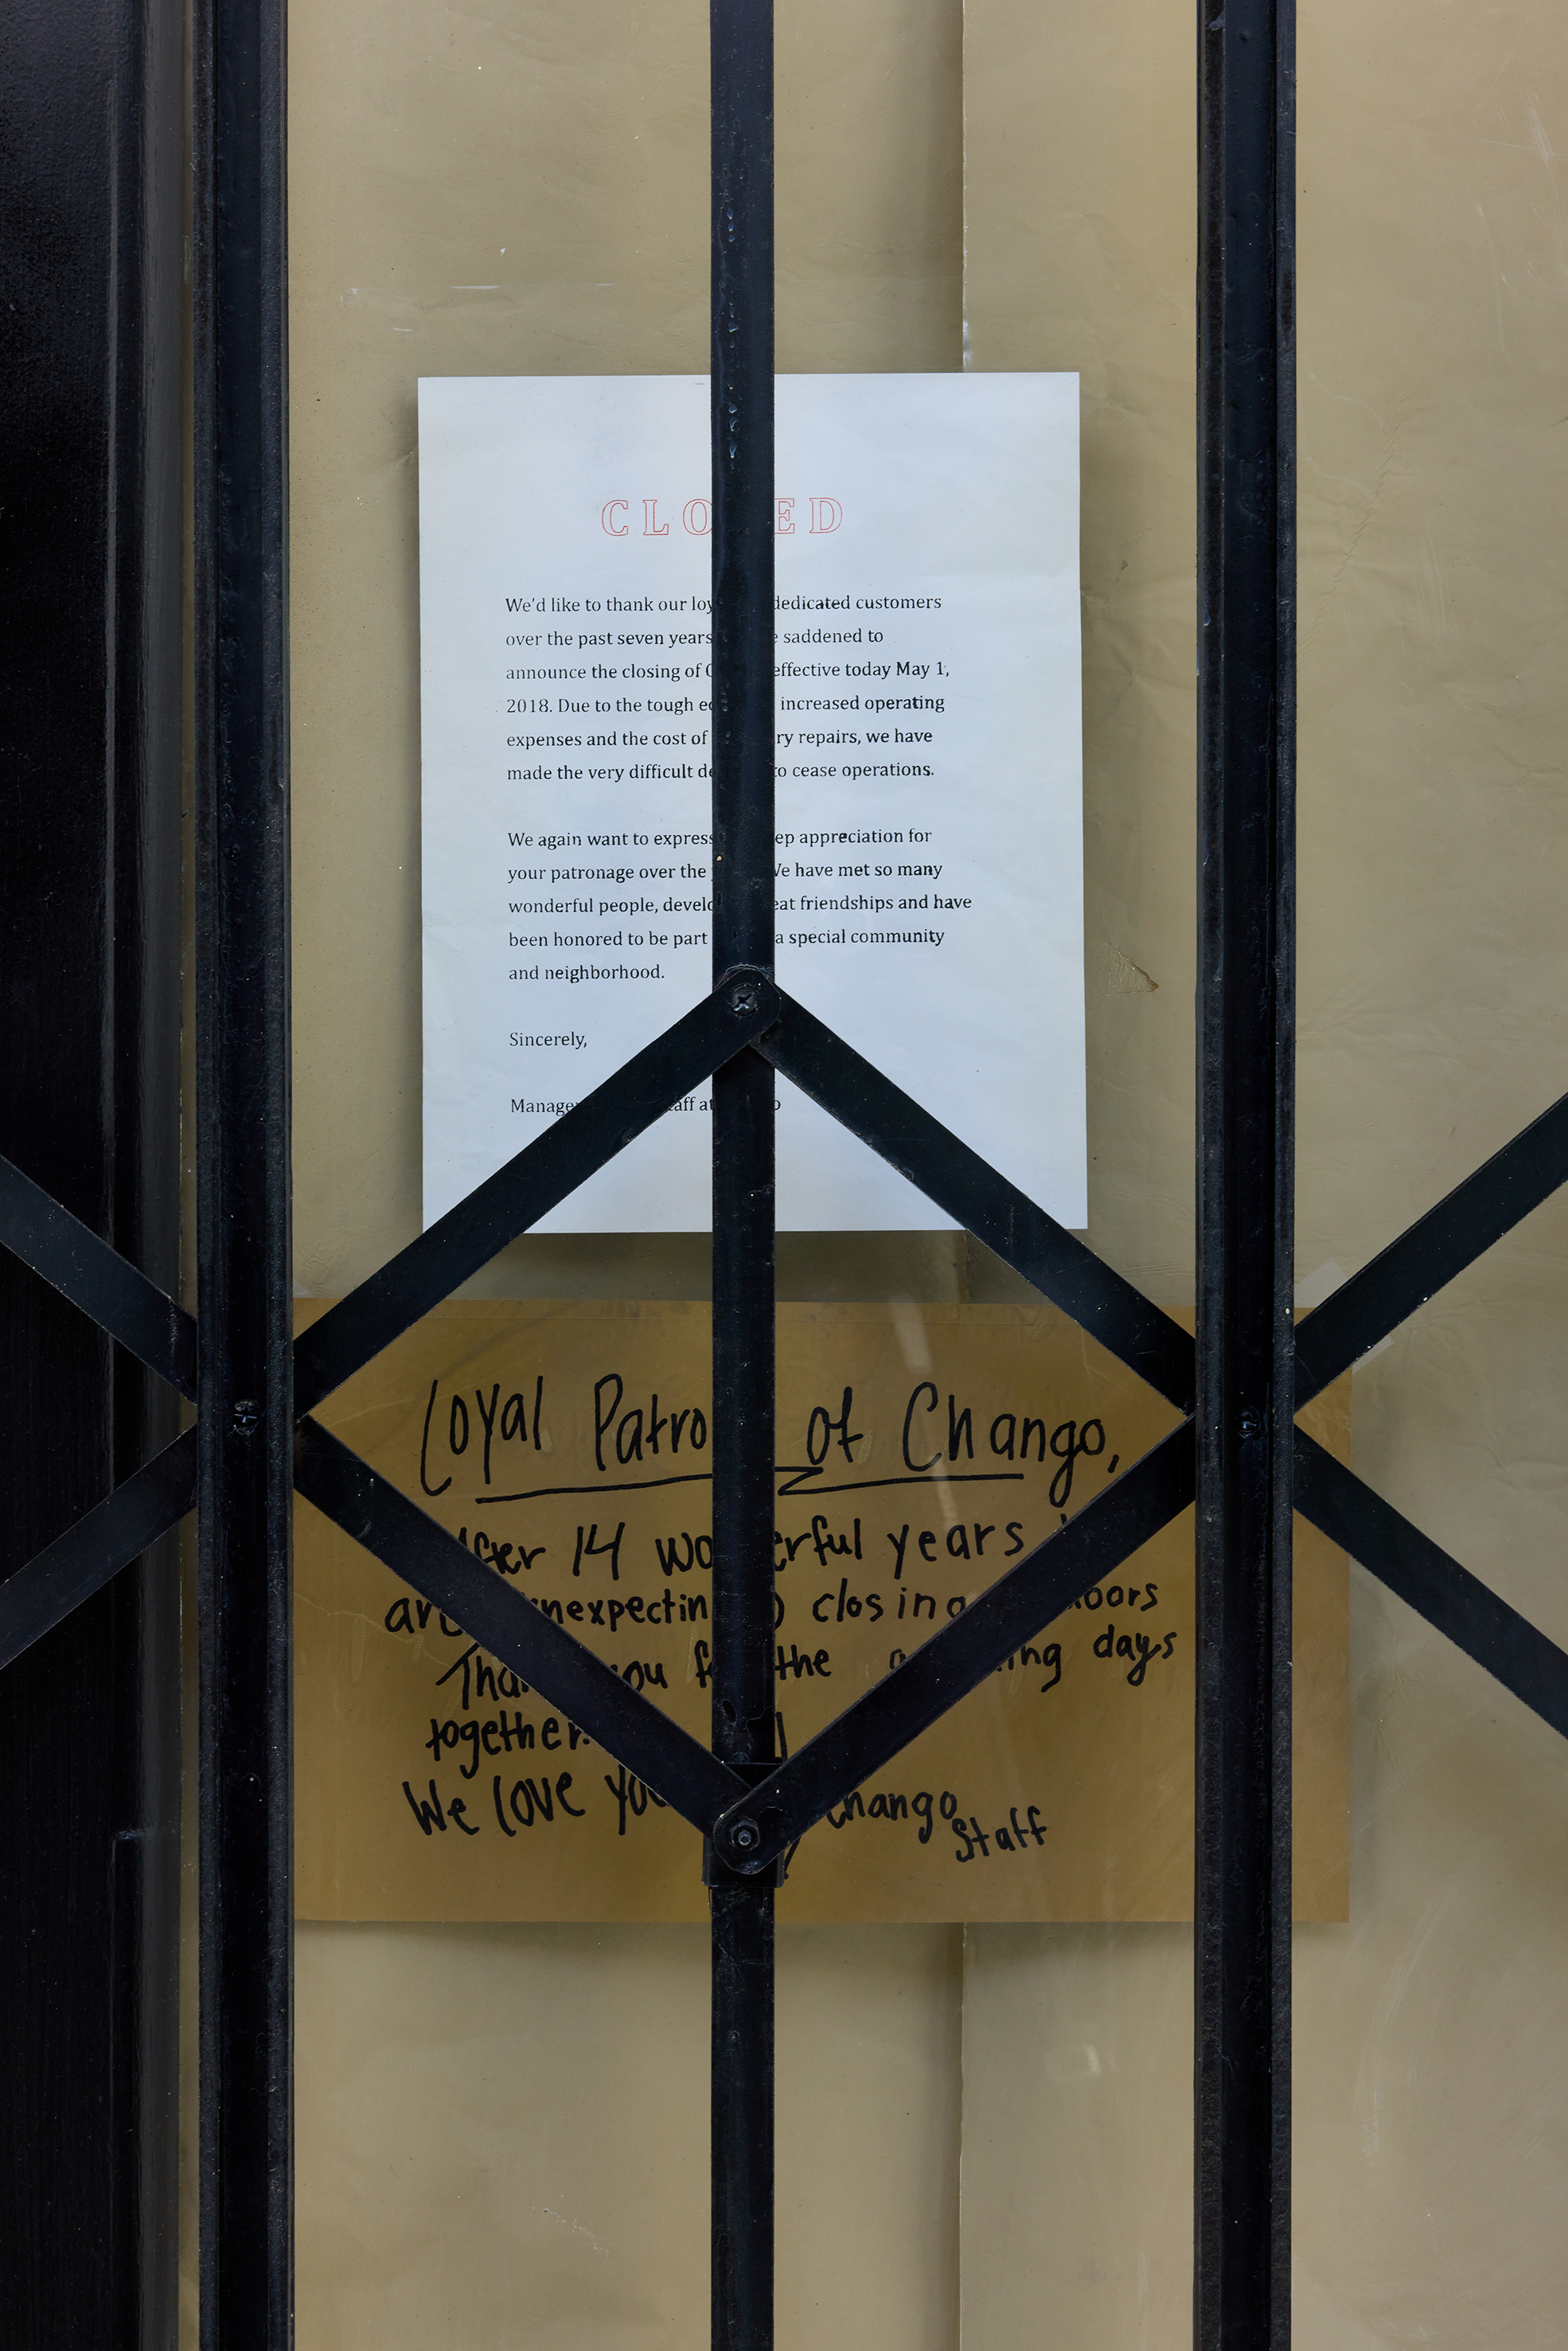 CLO ED
We'd like to thank our loy dedicated customers
over the past seven years saddened to
announce the closing of effective today May 1,
2018. Due to the tough increased operating
expenses and the cost of repairs, we have
made the very difficult to cease operations.
We again want to express appreciation for
your patronage over the We have met so many
wonderful people, friendships and have
been honored to be part a special community
and neighborhood.
Sincerely,
Manage at
Loyal Patro of Chango,
After 14 years
closing
Thank you the days
together.
We love you Chango
Staff